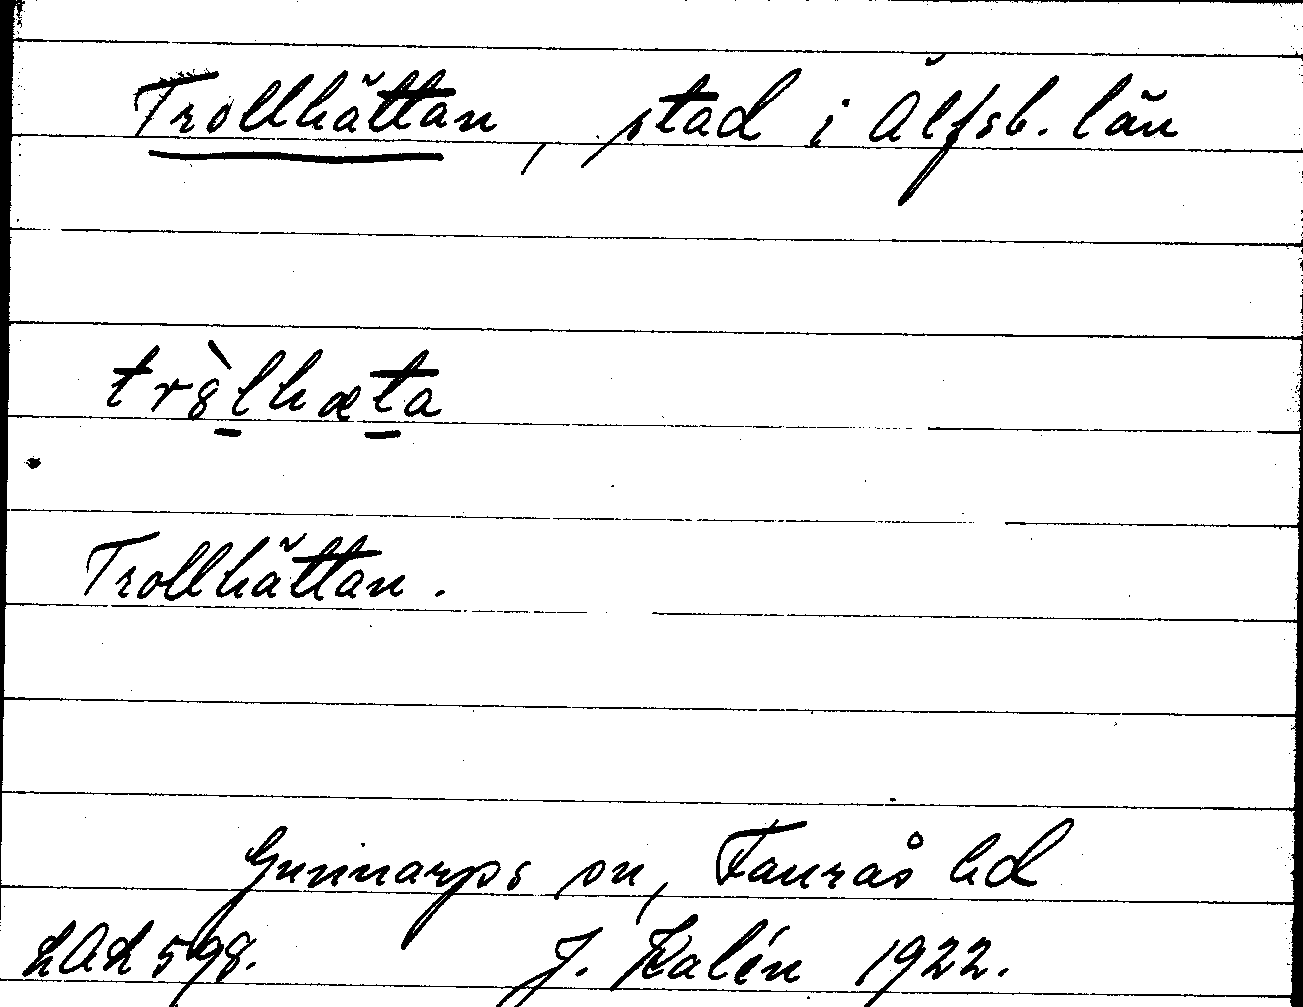 Trollhättan, stad i Älfsb. län
trȣ̀lhæta
Trollhättan.
Gunnarps sn, Faurås hd
LAL 598. J. Kalén 1922.